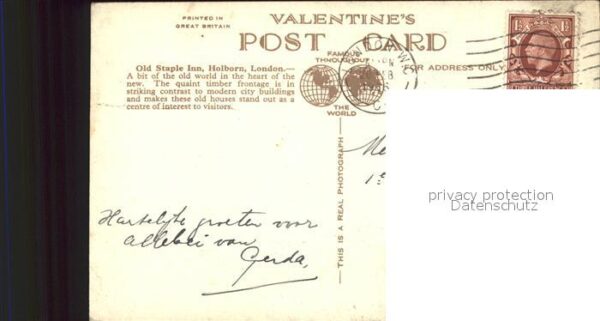 PRINTED IN
GREAT BRITAIN
VALENTINE'S
POST CARD
FAMOUS
THROUGHOUT
THE
WORLD
FOR ADDRESS ONLY
Old Staple Inn, Holborn, London.—
A bit of the old world in the heart of the
new. The quaint timber frontage is in
striking contrast to modern city buildings
and makes these old houses stand out as a
centre of interest to visitors.
THIS IS A REAL PHOTOGRAPH
1½ 1½
privacy protection
Datenschutz
Hartelijke groeten voor
allebei van
Gerda.